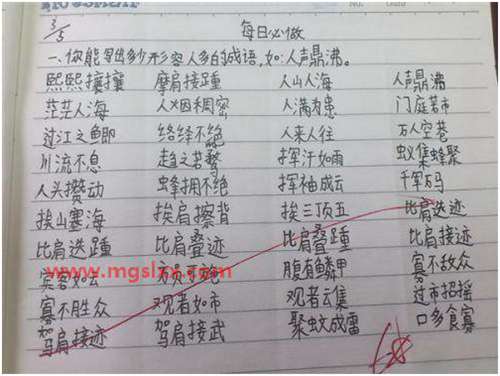 3/5 每日必做
一、你能写出多少形容人多的成语,如:人声鼎沸。
熙熙攘攘 摩肩接踵 人山人海 人声鼎沸
茫茫人海 人烟稠密 人满为患 门庭若市
过江之鲫 络绎不绝 人来人往 万人空巷
川流不息 趋之若鹜 挥汗如雨 蚁集蜂聚
人头攒动 蜂拥不绝 挥袖成云 千军万马
挨山塞海 挨肩擦背 挨三顶五 比肩迭迹
比肩迭踵 比肩叠迹 比肩叠踵 比肩接迹
宾客如云 腹有鳞甲 寡不敌众
www.mgslxx.com
寡不胜众 观者如市 观者云集 过市招摇
驾肩接迹 驾肩接武 聚蚊成雷 口多食寡